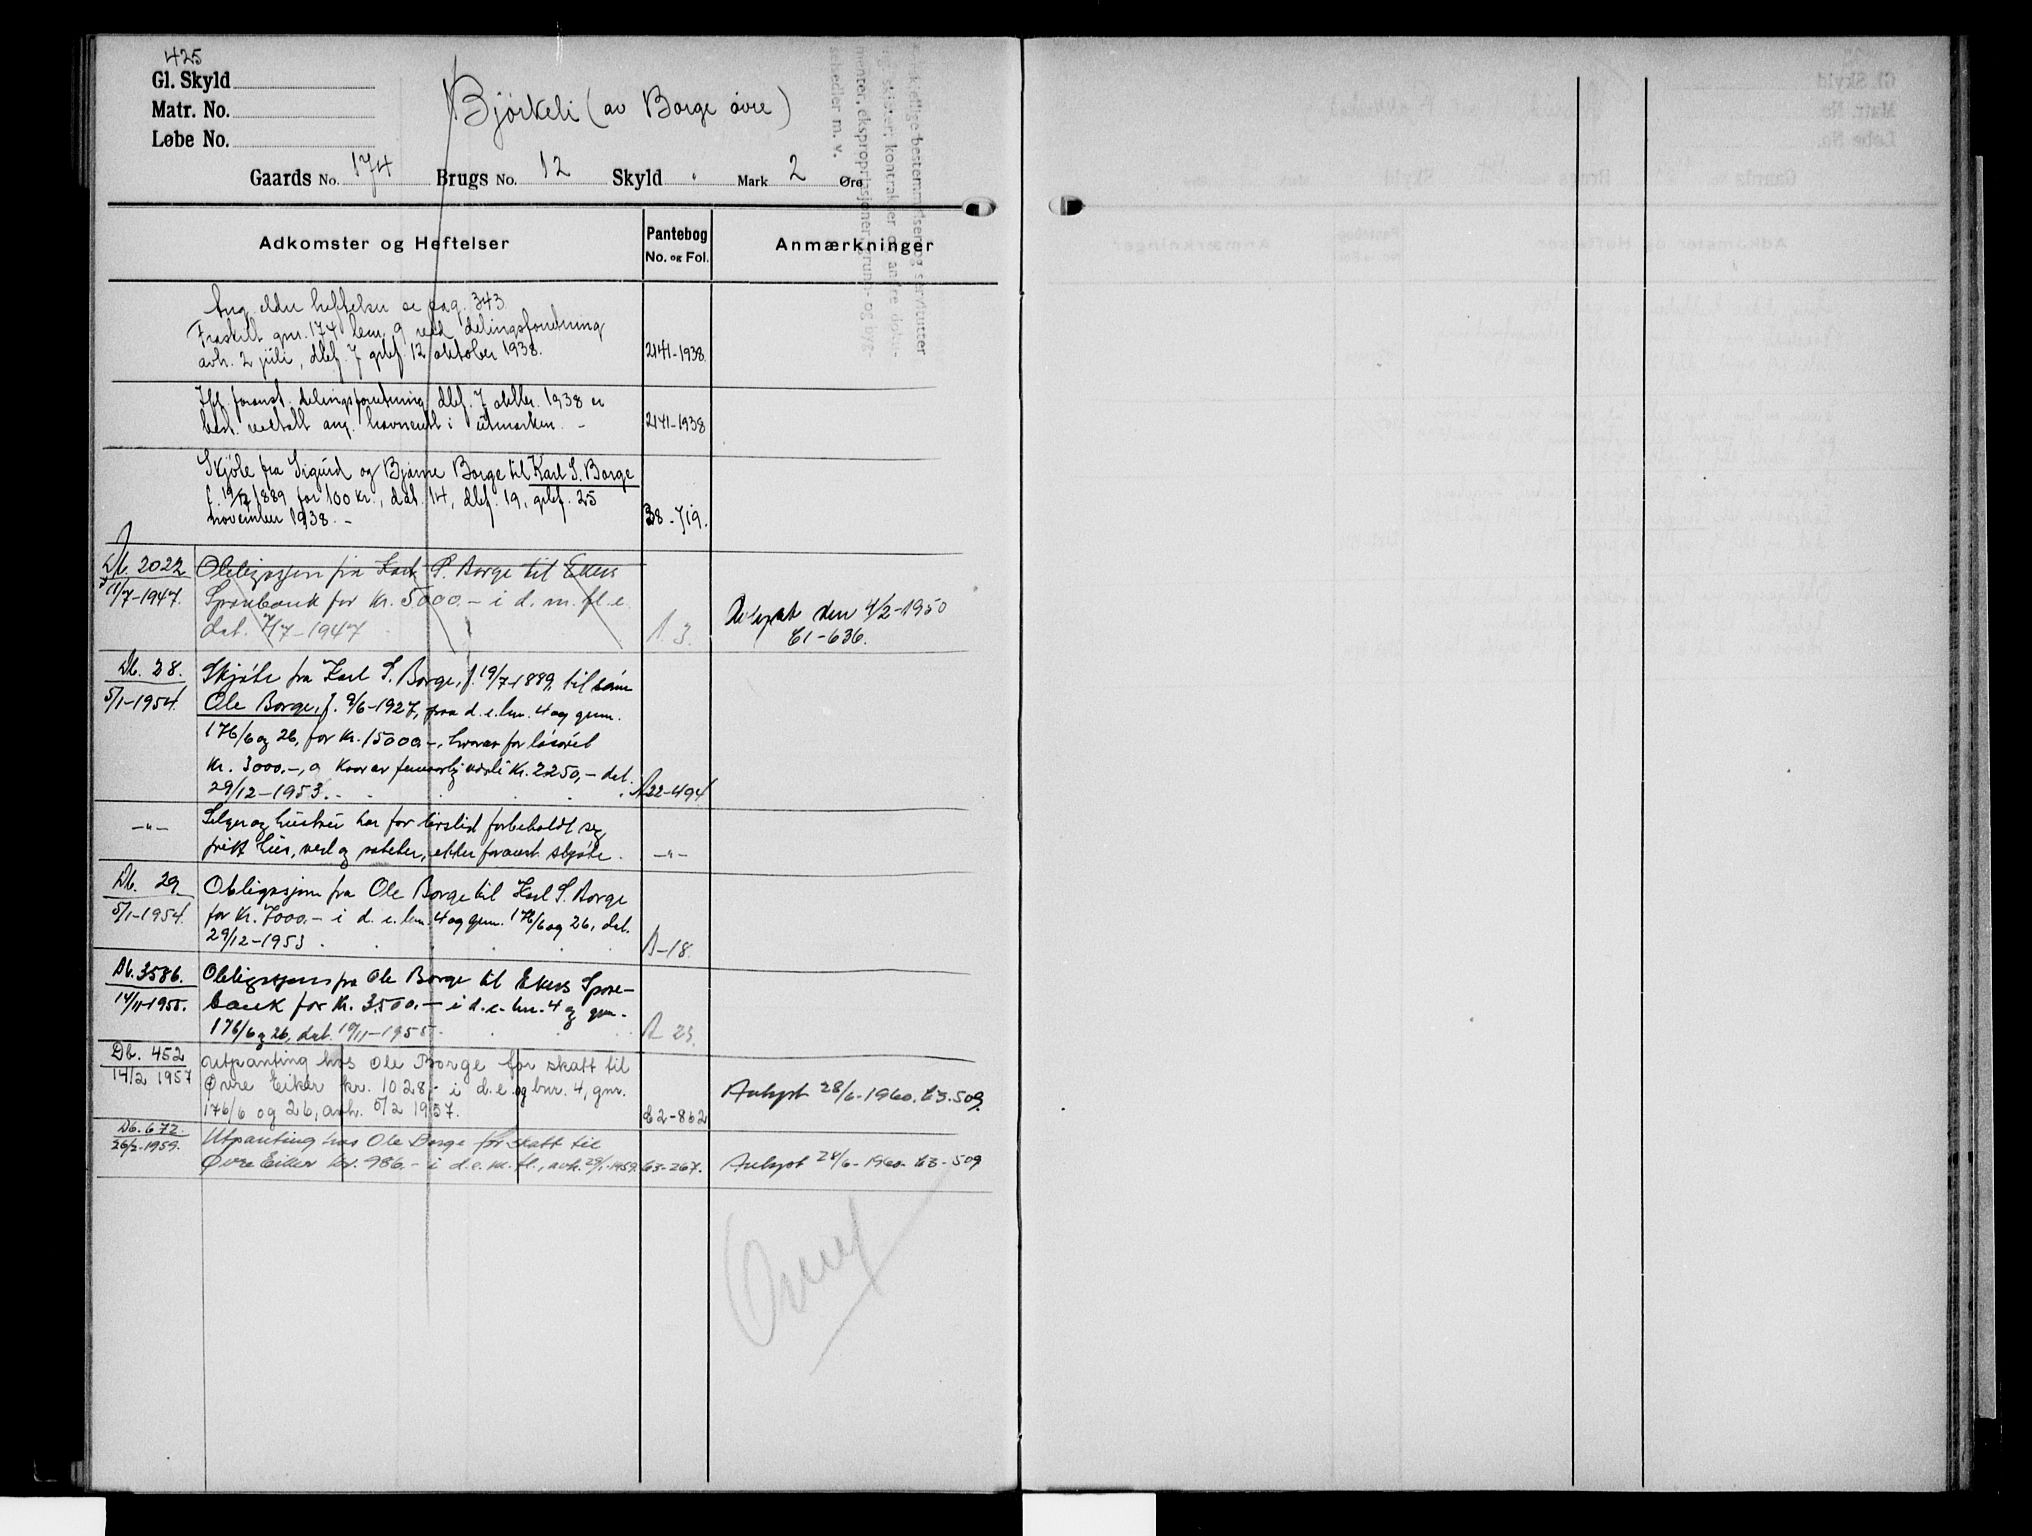 425
Gl. Skyld
Matr. No.
Løbe No.
Bjørkeli (av Borge øvre)
Gaards No. 174 Brugs No. 12 Skyld Mark 2 Øre
Adkomster og Heftelser
Pantebog
No. og Fol.
Anmærkninger
Ang. eldre heftelser se pag. 343.
Fraskilt gnr. 174 bnr. 9 ved delingsforretning
avh. 2 juli, dlef. 7 grbf. 12 oktober 1938. 2141-1938.
Ifl. foranst. delingsforretning dlef. 7 oktbr. 1938 er
best. vedtatt ang. havnerett i utmarken. - 2141-1938
Skjøte fra Sigurd og Bjarne Borge til Karl S. Borge
f. 19/7 1889 for 100 kr., dat. 14, dlef. 19, grbf. 25
november 1938. - 38-719.
Db. 2022
11/7-1947.
Obligasjon fra Karl S. Borge til Ekers
Sparebank for kr. 5000.- i d. m. fl. e.
dat. 7/7-1947 A 3.
den 4/2-1950
C1-636.
Db. 28.
5/1-1954.
Skjøte fra Karl S. Borge, f. 19/7-1889, til sønn
Ole Borge, f. 9/6-1927, paa d. e. bnr. 4 og gnr.
176/6 og 26, for kr. 15000.-, hvorav for løsøret
kr. 3000.-, og kaar av femaarlig verdi kr. 2250,- dat.
29/12-1953. A22-494
-"-
Selger og hustru har for livstid forbeholdt seg
fritt hus, ved og poteter, etter foranst. skjøte. -"-
Db. 29.
5/1-1954.
Obligasjon fra Ole Borge til Karl S. Borge
for kr. 7000.- i d. e. bnr. 4 og gnr. 176/6 og 26, dat.
29/12-1953. A-18.
Db. 3586.
14/11-1955.
Obligasjon fra Ole Borge til Ekers Spare-
bank for kr. 3500.- i d. e. bnr. 4 og gnr.
176/6 og 26, dat. 10/11-1955. A 23.
Db. 452
14/2 1957
Utpanting hos Ole Borge for skatt til
Øvre Eiker kr. 1028,- i d. e. og bnr. 4, gnr.
176/6 og 26, avh. 5/2 1957. C2-862
Avlyst 28/6-1960. C3-509.
Db. 672.
26/2-1959.
Utpanting hos Ole Borge for skatt til
Øvre Eiker kr. 986.- i d. e. m. fl., avh. 29/1-1959. C3-267.
Avlyst 28/6-1960. C3-509